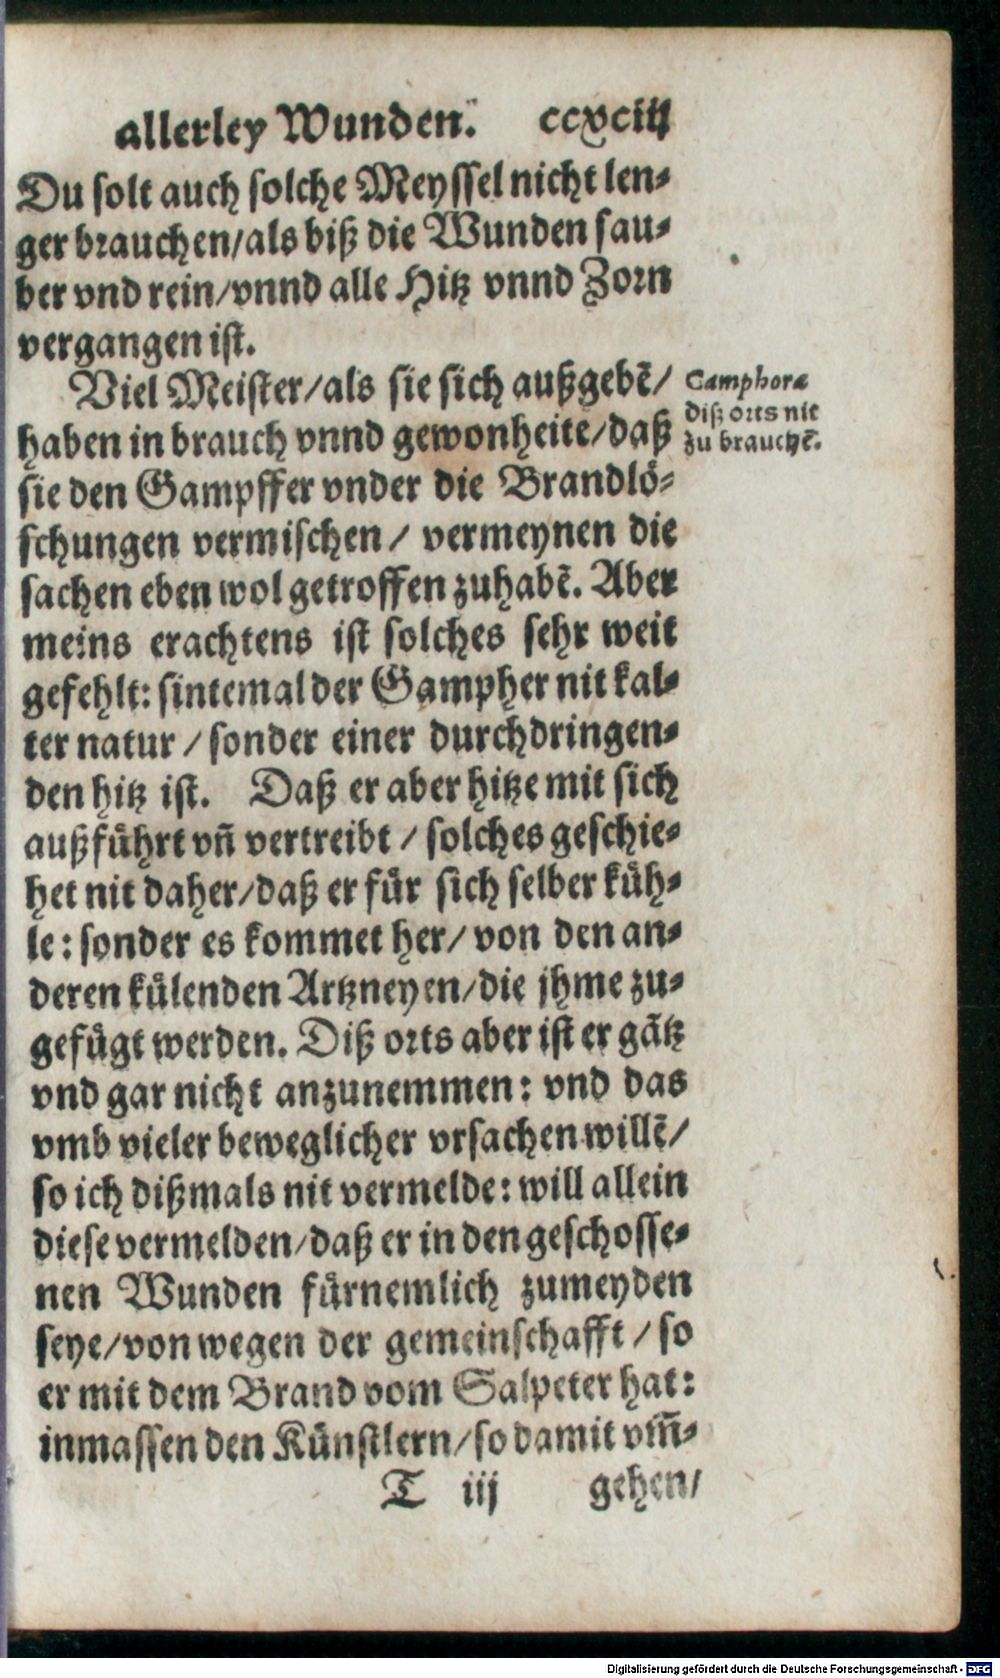 allerley Wunden. ccxciij
Du solt auch solche Meyssel nicht len⸗
ger brauchen/als biß die Wunden sau⸗
ber vnd rein/vnnd alle Hitz vnnd Zorn
vergangen ist.
Viel Meister/als sie sich außgebē/
haben in brauch vnnd gewonheite/daß
sie den Gampffer vnder die Brandlö⸗
schungen vermischen/ vermeynen die
sachen eben wol getroffen zuhabē. Aber
meins erachtens ist solches sehr weit
gefehlt: sintemal der Gampher nit kal⸗
ter natur / sonder einer durchdringen⸗
den hitz ist. Daß er aber hitze mit sich
außführt vn̄ vertreibt / solches geschie⸗
het nit daher/daß er für sich selber küh⸗
le: sonder es kommet her/ von den an⸗
deren külenden Artzneyen/die jhme zu⸗
gefügt werden. Diß orts aber ist er gātz
vnd gar nicht anzunemmen: vnd das
vmb vieler beweglicher vrsachen willē/
so ich dißmals nit vermelde: will allein
diese vermelden/daß er in den geschosse⸗
nen Wunden fürnemlich zumeyden
seye/von wegen der gemeinschafft / so
er mit dem Brand vom Salpeter hat:
inmassen den Künstlern/so damit vm̄⸗
T iij gehen/
Camphora
diß orts nit
zu brauchē.
Digitalisierung gefördert durch die Deutsche Forschungsgemeinschaft - DFG